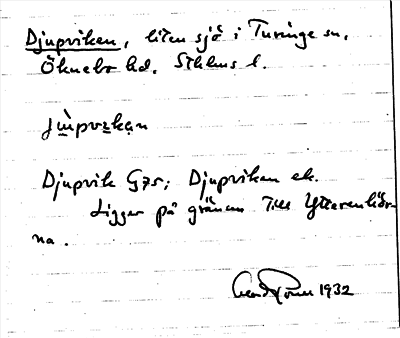 Djupviken, liten sjö i Turinge sn,
Öknebo hd, Sthlms l.
Djupvik G75; Djupviken ek.
Ligger på gränsen till Ytterenhör-
na.
1932